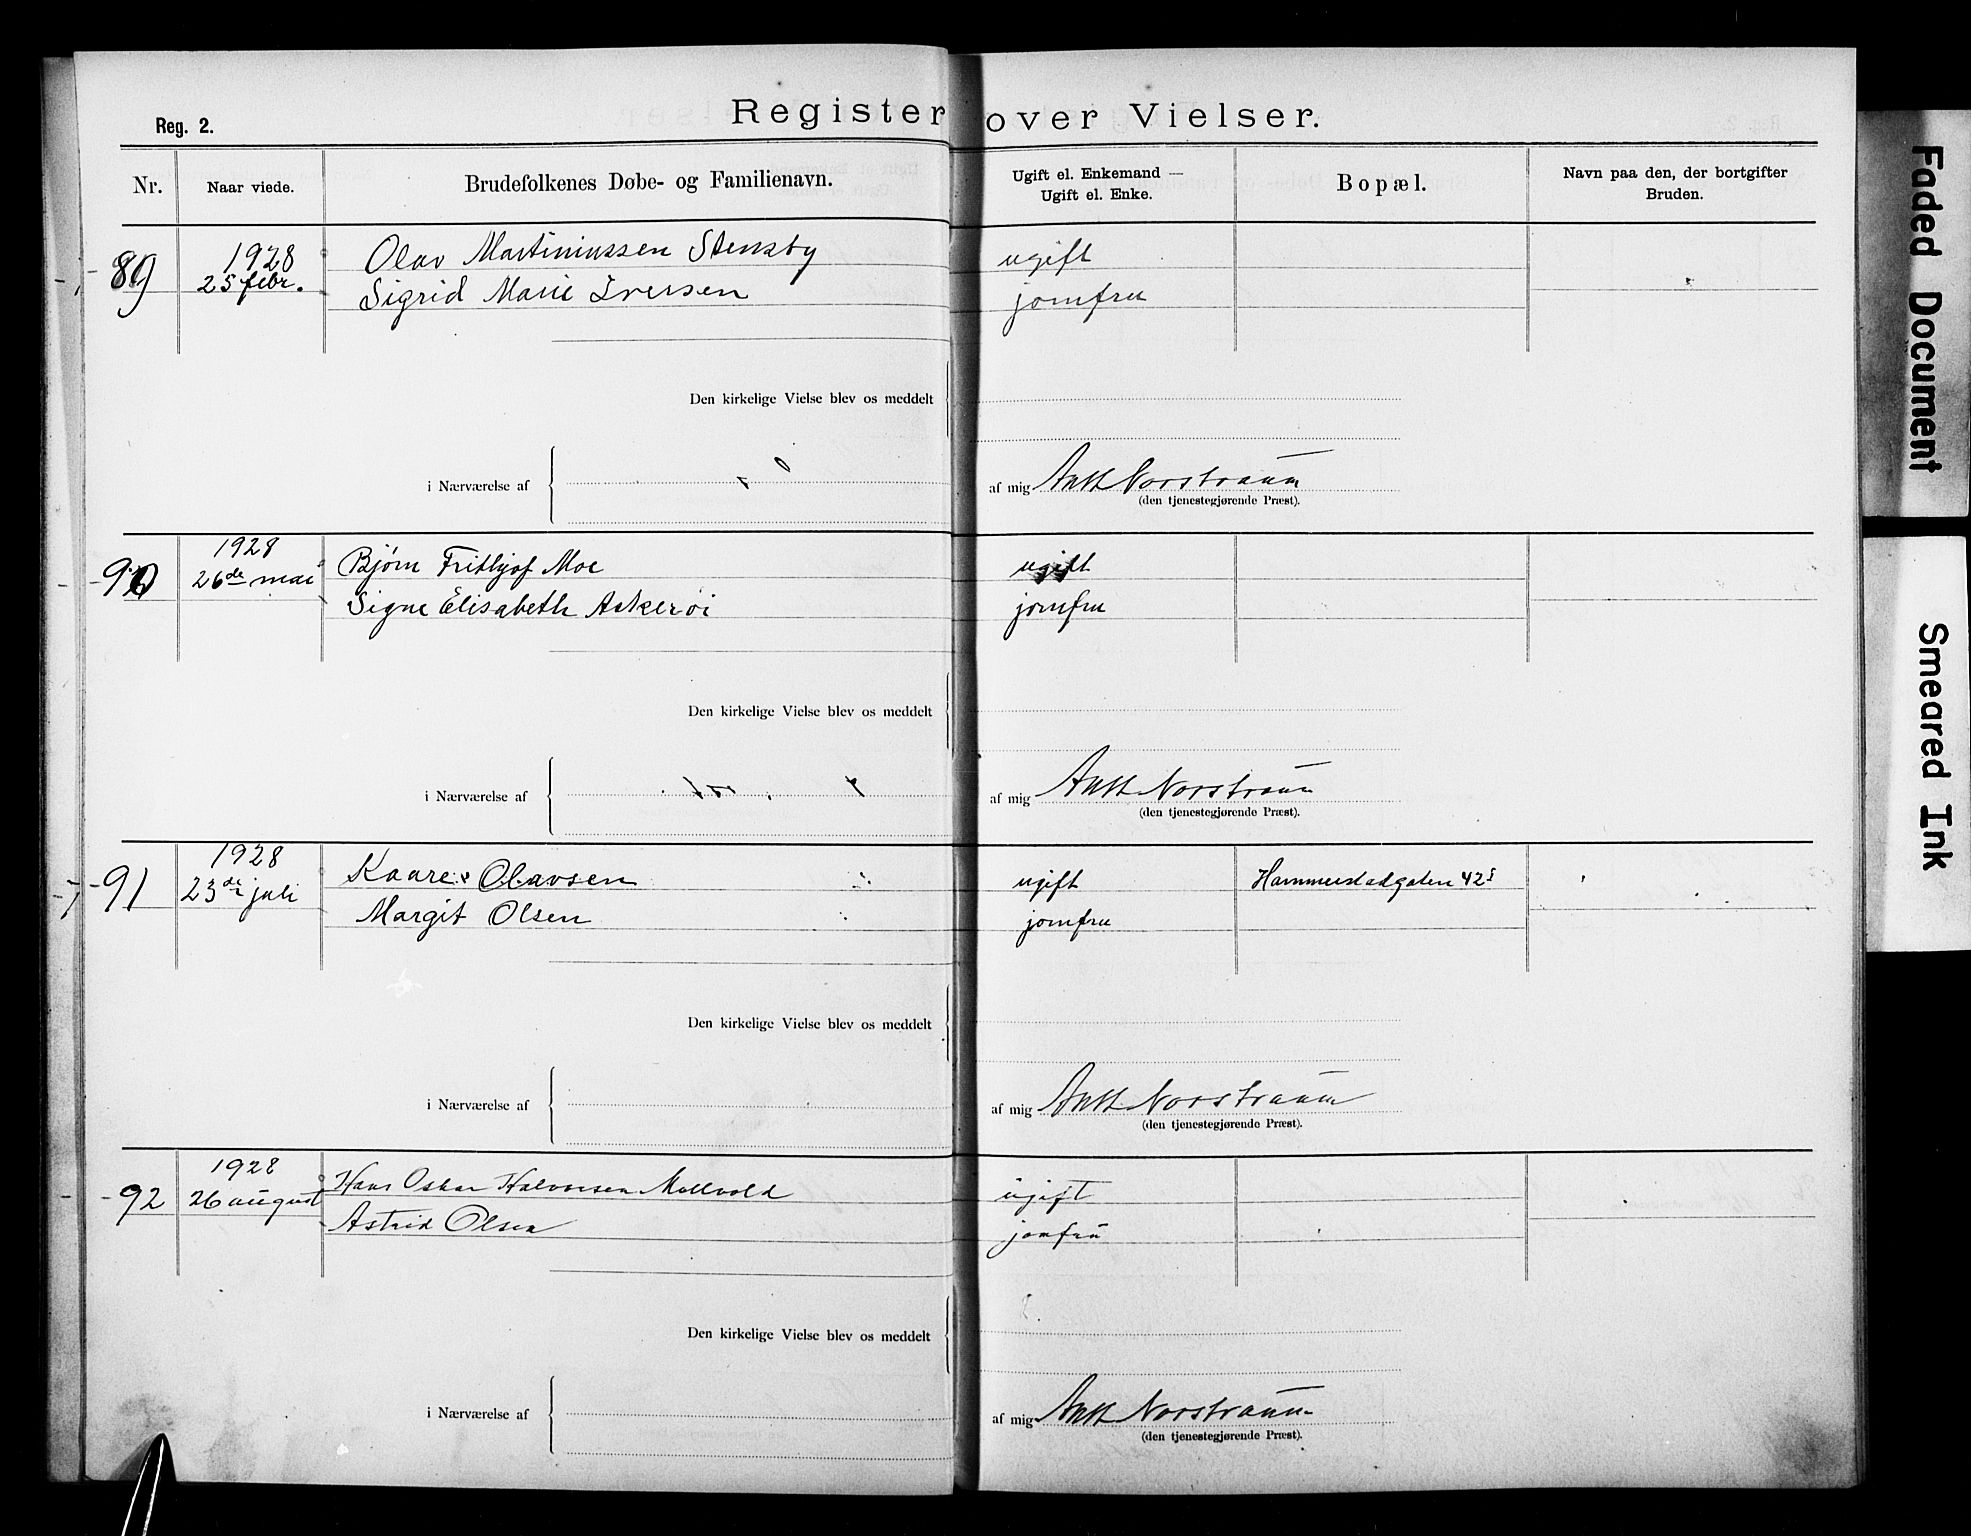 Register over Vielser.
Reg. 2.
Nr. Naar viede. Brudefolkenes Døbe- og Familienavn. Ugift el. Enkemand — Ugift el. Enke. Bopæl. Navn paa den, der bortgifter Bruden.
89 1928 Olav Martiniussen Stensby ugift
25 febr. Sigrid Marie Iversen jomfru
Den kirkelige Vielse blev os meddelt
i Nærværelse af af mig Anth Norstraum
(den tjenestegjørende Præst).
90 1928 Bjørn Frithjof Moe ugift
26de mai Signe Elisabeth Askerøi jomfru
Den kirkelige Vielse blev os meddelt
i Nærværelse af af mig Anth Norstraum
(den tjenestegjørende Præst).
91 1928 Kaare Olavsen ugift Hammerstadgaten 42
23de juli Margit Olsen jomfru
Den kirkelige Vielse blev os meddelt
i Nærværelse af af mig Anth Norstraum
(den tjenestegjørende Præst).
92 1928 Hans Oskar Halvorsen ugift
26 august Astrid Olsen jomfru
Den kirkelige Vielse blev os meddelt
i Nærværelse af af mig Anth Norstraum
(den tjenestegjørende Præst).
Faded Document
Smeared Ink